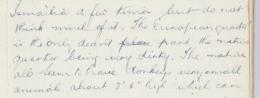 Ismailia a few times but do not
think much of it. The European quarter
is the only decent place part the native
quarter being very dirty. The natives
all seem to have donkeys very small
animal about 3' 6" high which can